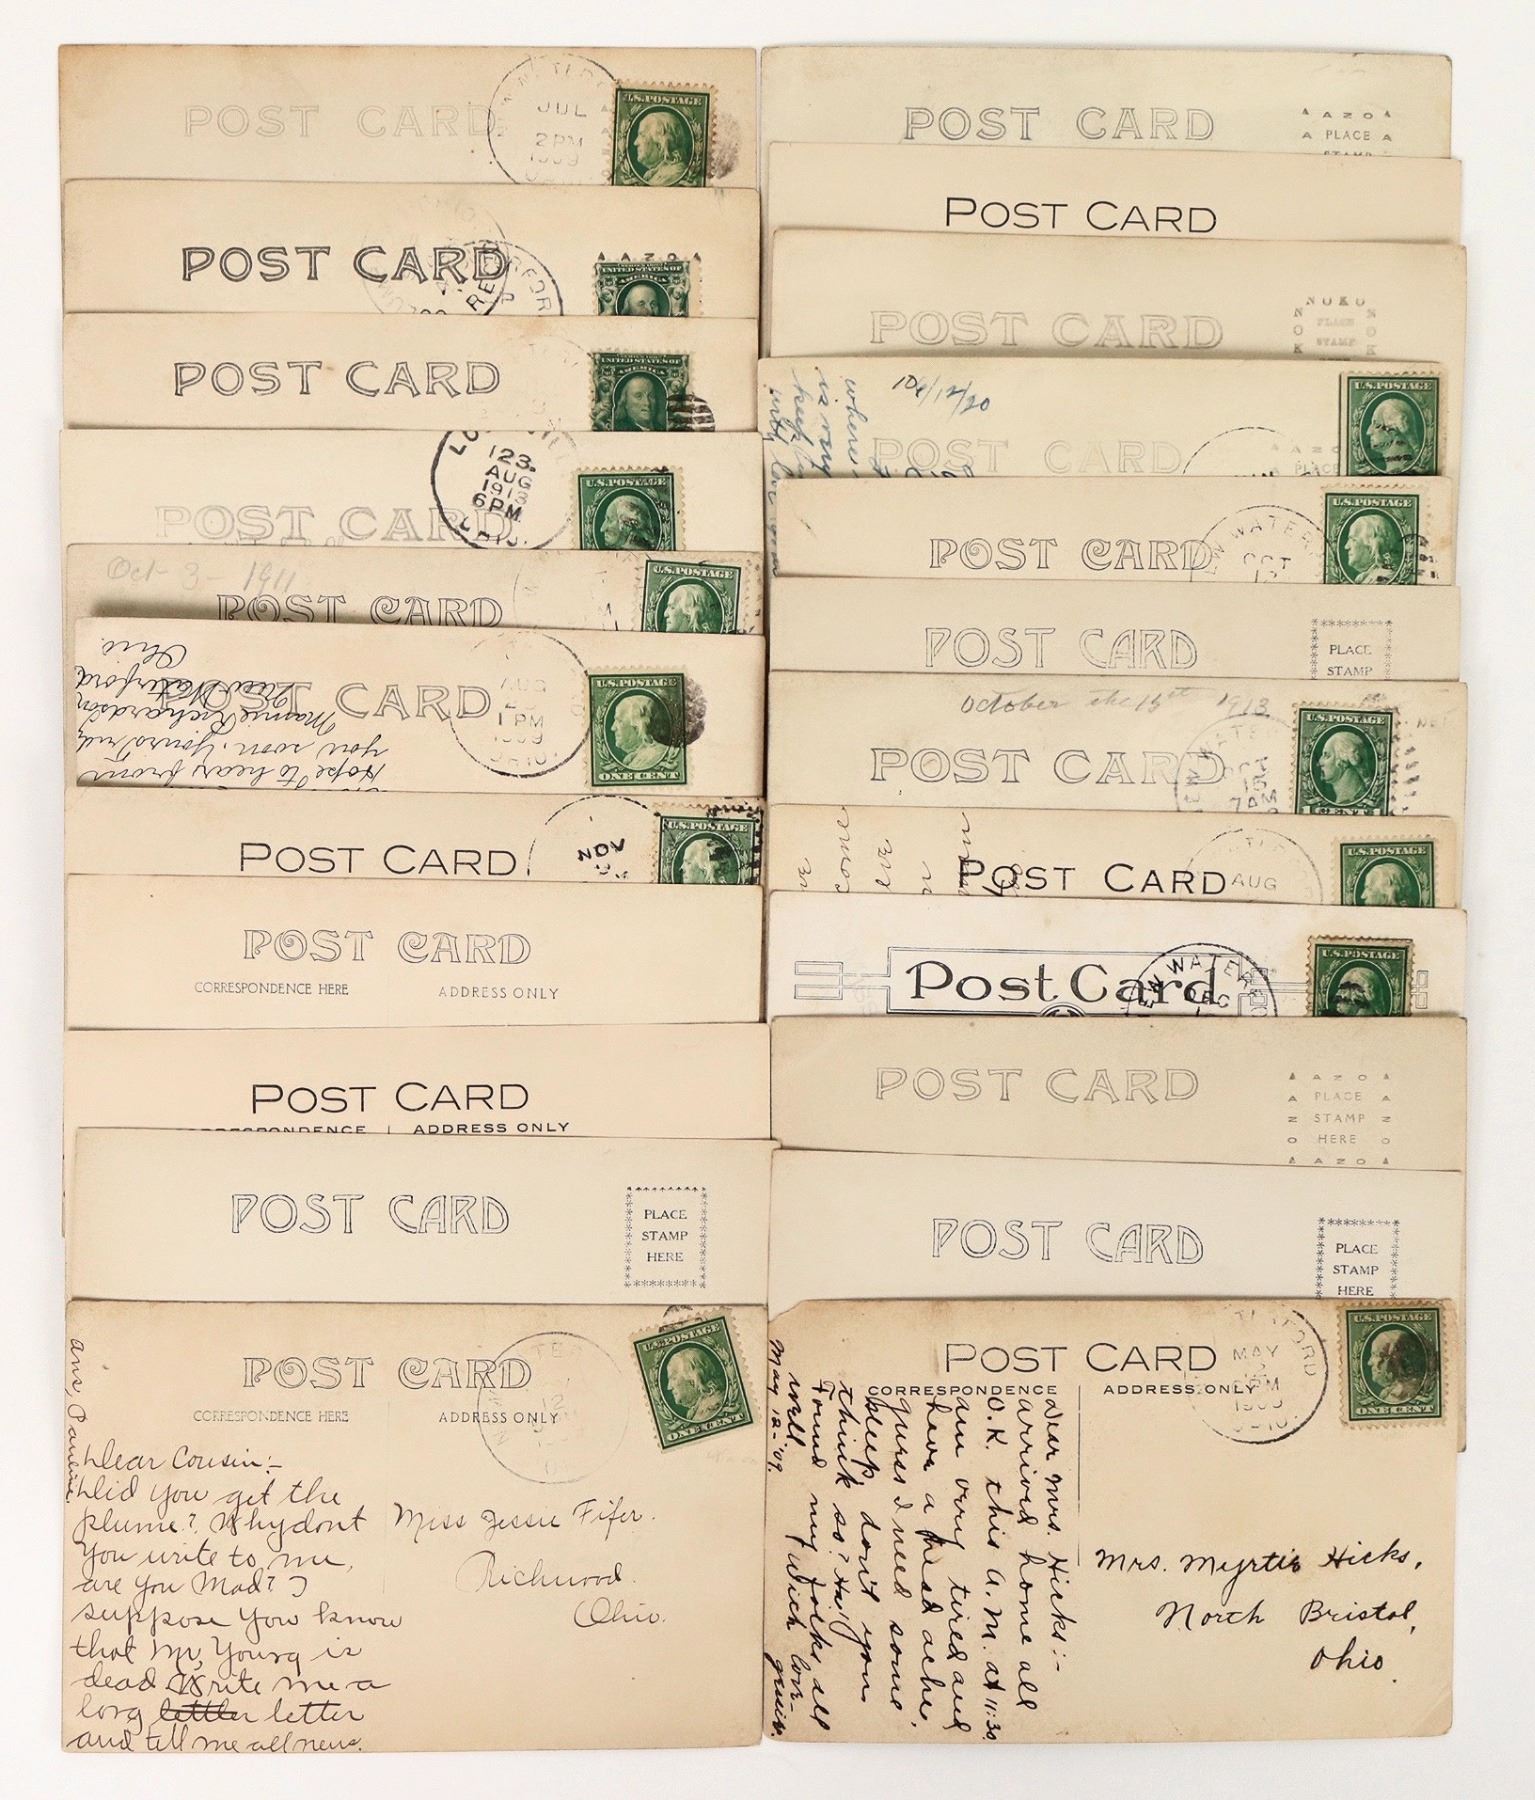 POST CARD
JUL
2 PM
1909
U.S. POSTAGE
POST CARD
AZO
UNITED STATES OF
AMERICA
POST CARD
UNITED STATES OF
AMERICA
123.
AUG
1913
6 PM.
POST CARD
Oct-3-1911
POST CARD
U.S. POSTAGE
POST CARD
Hope to hear from
you soon. Yours Truly
Mamie Richardson
New Waterford
Ohio.
AUG
1 PM
1909
OHIO
U.S. POSTAGE
ONE CENT
POST CARD
NOV
U.S. POSTAGE
POST CARD
CORRESPONDENCE HERE ADDRESS ONLY
POST CARD
CORRESPONDENCE ADDRESS ONLY
POST CARD
PLACE
STAMP
HERE
POST CARD
CORRESPONDENCE HERE ADDRESS ONLY
12
U.S. POSTAGE
ONE CENT
ans, Pauline.
Dear Cousin:-
Did you get the
plume? Why dont
you write to me,
are you Mad? I
suppose you know
that Mr, Young is
dead. Write me a
long letter letter
and tell me all news.
Miss Jessie Fifer.
Richwood.
Ohio.
POST CARD
AZO
PLACE
STAMP
POST CARD
POST CARD
NOKO
PLACE
STAMP
10/12/20
where
is my
keep
with love
POST CARD
PLACE
U.S. POSTAGE
POST CARD
NEW WATERF
OCT
U.S. POSTAGE
POST CARD
PLACE
STAMP
October the 15st 1913
POST CARD
U.S. POSTAGE
1 CENT 1
POST CARD
AUG
U.S. POSTAGE
Post Card
NEW WATER
DEC
U.S. POSTAGE
POST CARD
AZO
PLACE
STAMP
HERE
AZO
POST CARD
PLACE
STAMP
HERE
POST CARD
CORRESPONDENCE ADDRESS ONLY
TERFORD
MAY
PM
1909
U.S. POSTAGE
ONE CENT
Dear Mrs. Hicks:-
arrived home all
O.K. this A.M. at 11:30
am very tired and
have a head ache.
guess I need some
sleep don't you
think so? Ha!
Found my folks all
well. With love-
May 12-'09.
Mrs. Myrtis Hicks,
North Bristol,
Ohio.